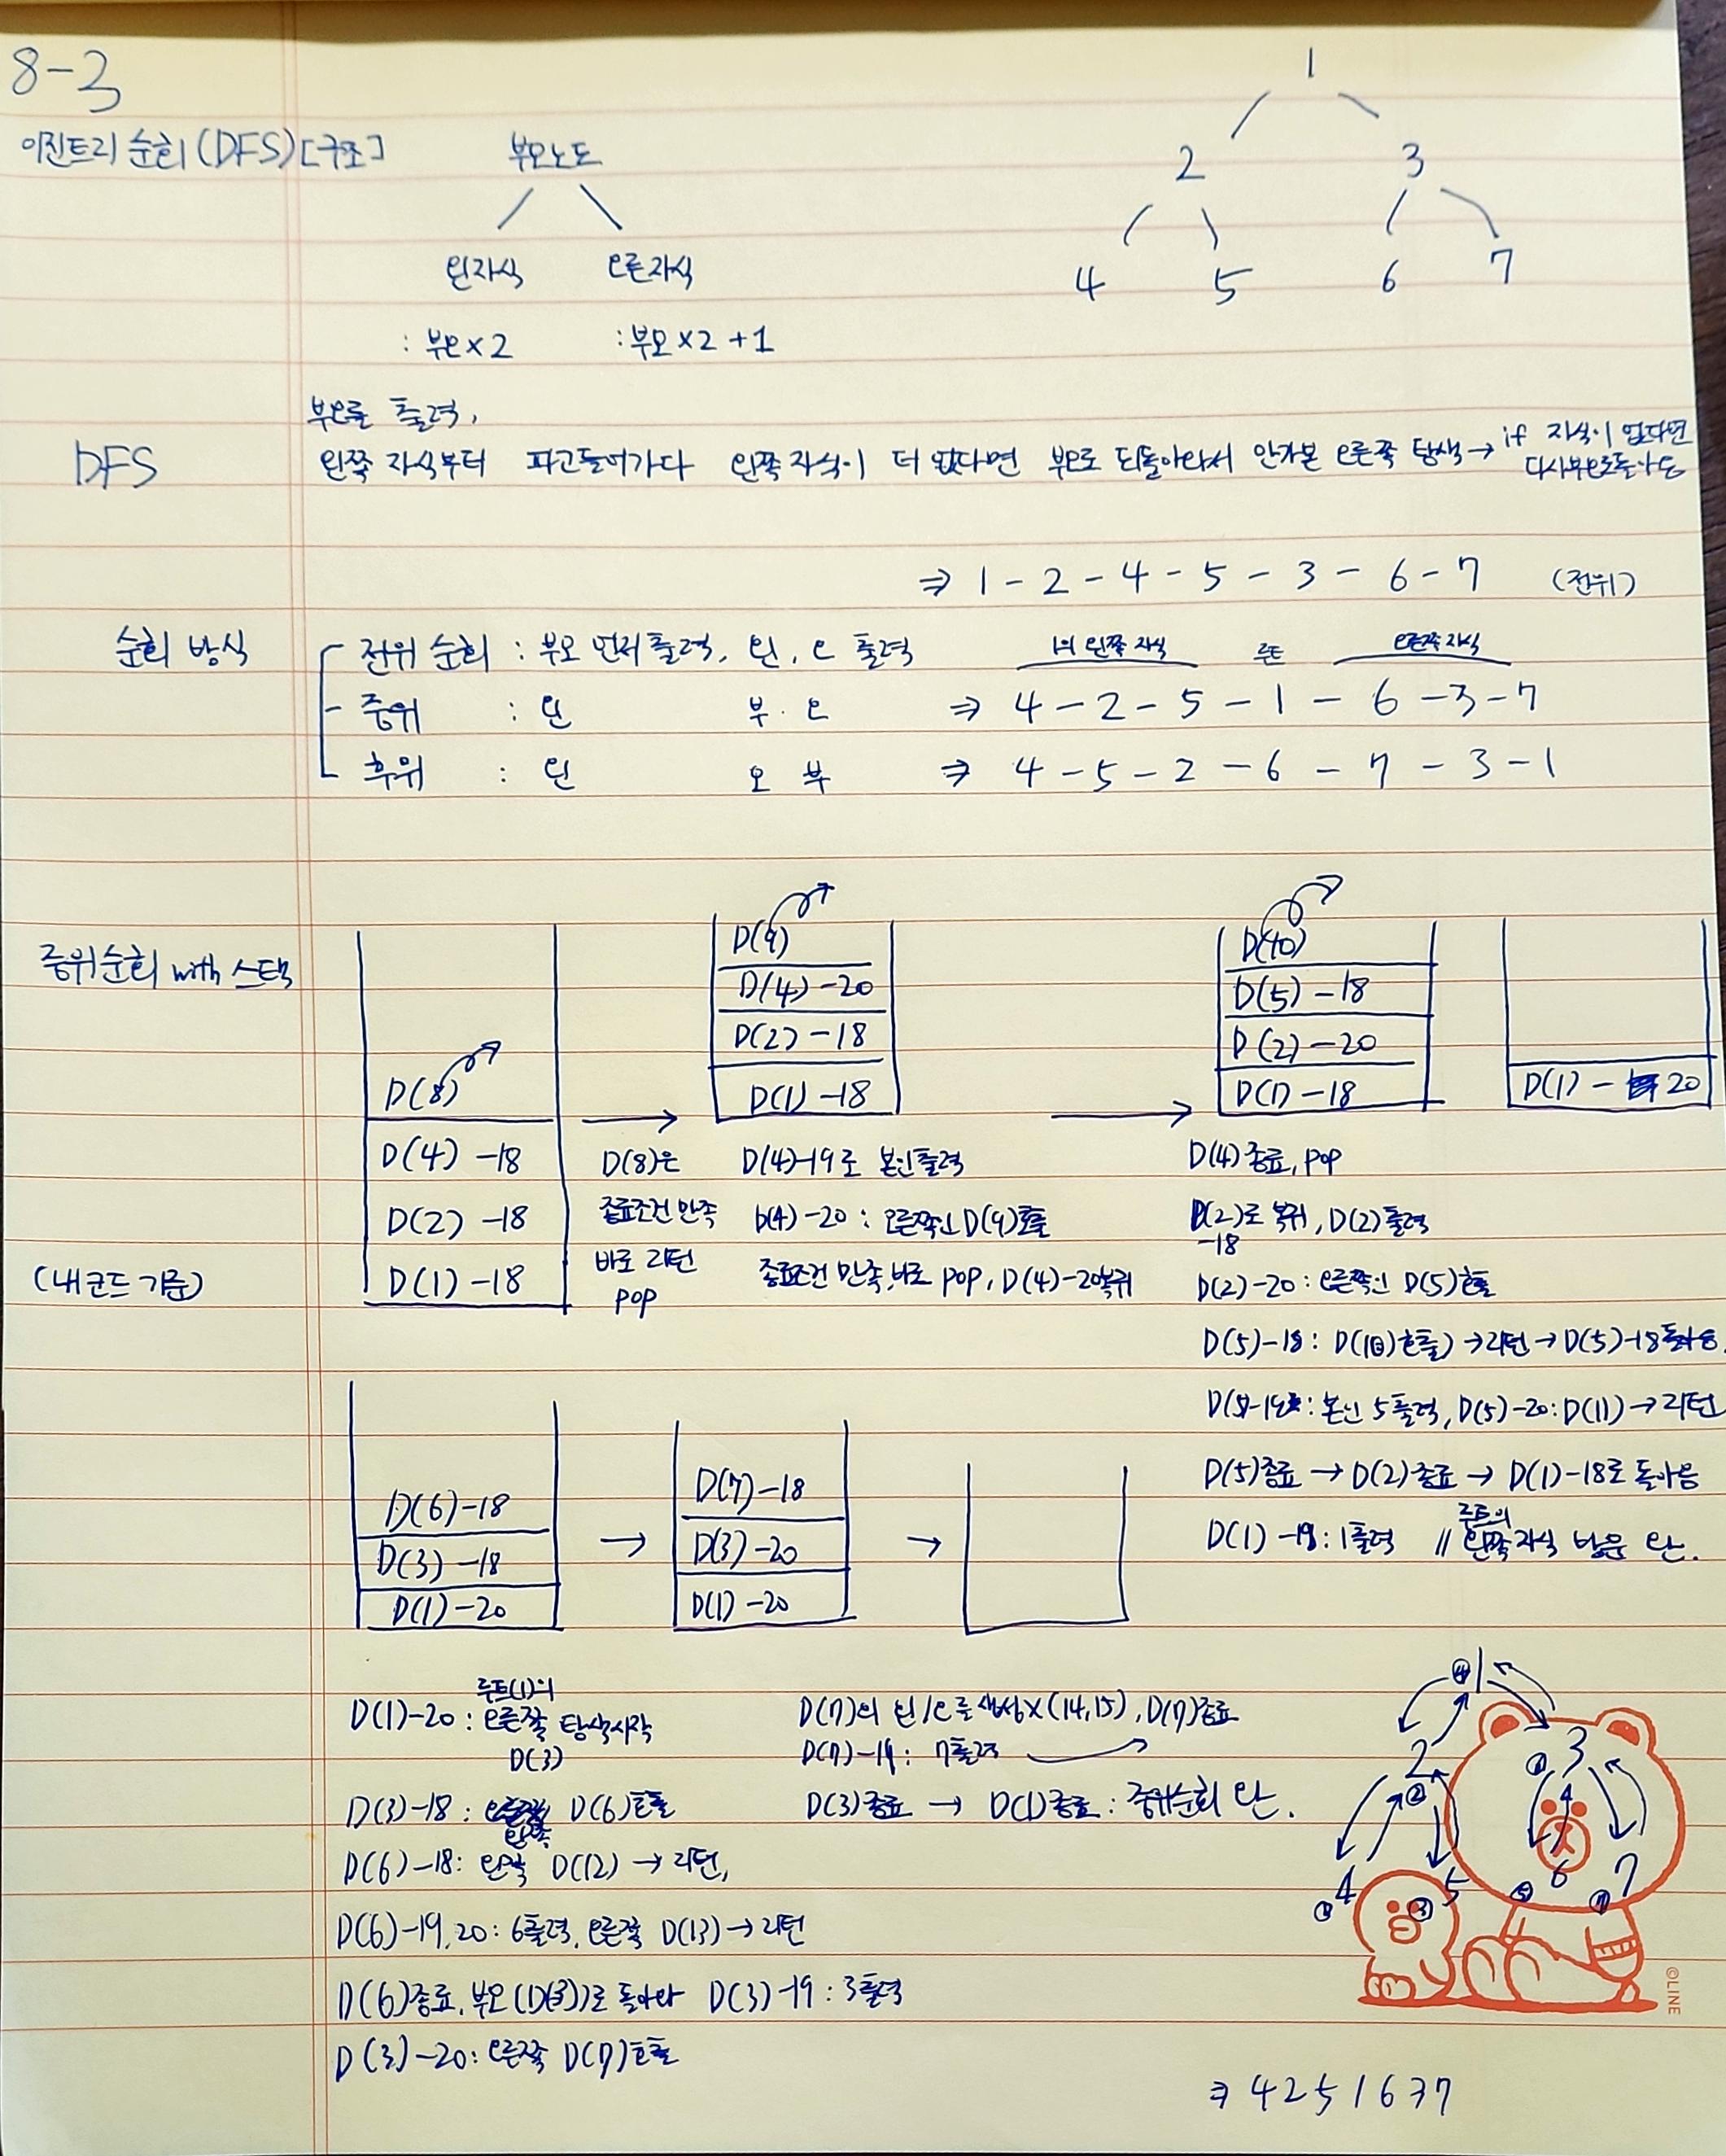 8-3
이진트리 순회(DFS)[구조]
부모노드
왼자식 오른자식
: 부모×2 : 부모×2+1
1
2 3
4 5 6 7
부모를 출력,
DFS 왼쪽 자식부터 파고들어가다 왼쪽 자식이 더 없다면 부모로 되돌아와서 안가본 오른쪽 탐색→ if 자식이 없다면
다시부모로돌아옴
⇒ 1-2-4-5-3-6-7 (전위)
순회 방식
전위 순회 : 부모 먼저 출력, 왼, 오 출력
1의 왼쪽 자식 루트 오른쪽자식
중위 : 왼 부·오 ⇒ 4-2-5-1-6-3-7
후위 : 왼 오 부 ⇒ 4-5-2-6-7-3-1
중위순회 with 스택
(내코드 기준)
D(8)
D(4) -18
D(2) -18
D(1) -18
D(8)은
종료조건 만족
바로 리턴
pop
D(9)
D(4)-20
D(2)-18
D(1)-18
D(4)-19로 본인출력
D(4)-20 : 오른쪽인 D(9)호출
종료조건 만족,바로 pop, D(4)-20복귀
D(10)
D(5)-18
D(2)-20
D(1)-18
D(1)- 20
D(4)종료, pop
D(2)로 복귀, D(2)출력
-18
D(2)-20: 오른쪽인 D(5)호출
D(5)-18: D(10)호출)→리턴→D(5)-18돌아옴.
D(5)-19: 본인 5출력, D(5)-20:D(11)→리턴
D(5)종료 → D(2)종료 → D(1)-18로 돌아옴
루트의
D(1)-19: 1출력 // 왼쪽자식 방문 완.
D(6)-18
D(3)-18
D(1)-20
→
D(7)-18
D(3)-20
D(1)-20
→
루트(1)의
D(1)-20: 오른쪽 탐색시작
D(3)
D(3)-18: D(6)호출
왼쪽
D(6)-18: 왼쪽 D(12)→리턴,
D(6)-19,20: 6출력, 오른쪽 D(13)→리턴
D(6)종료, 부모(D(3))로 돌아와 D(3)-19: 3출력
D(3)-20: 오른쪽 D(7)호출
D(7)의 왼/오른 생성×(14,15), D(7)종료
D(7)-19: 7출력
D(3)종료 → D(1)종료: 중위순회 완.
④ 1
2 3
② ⑥
4 5 6 7
① ③ ⑤ ⑦
©LINE
⇒ 4251637